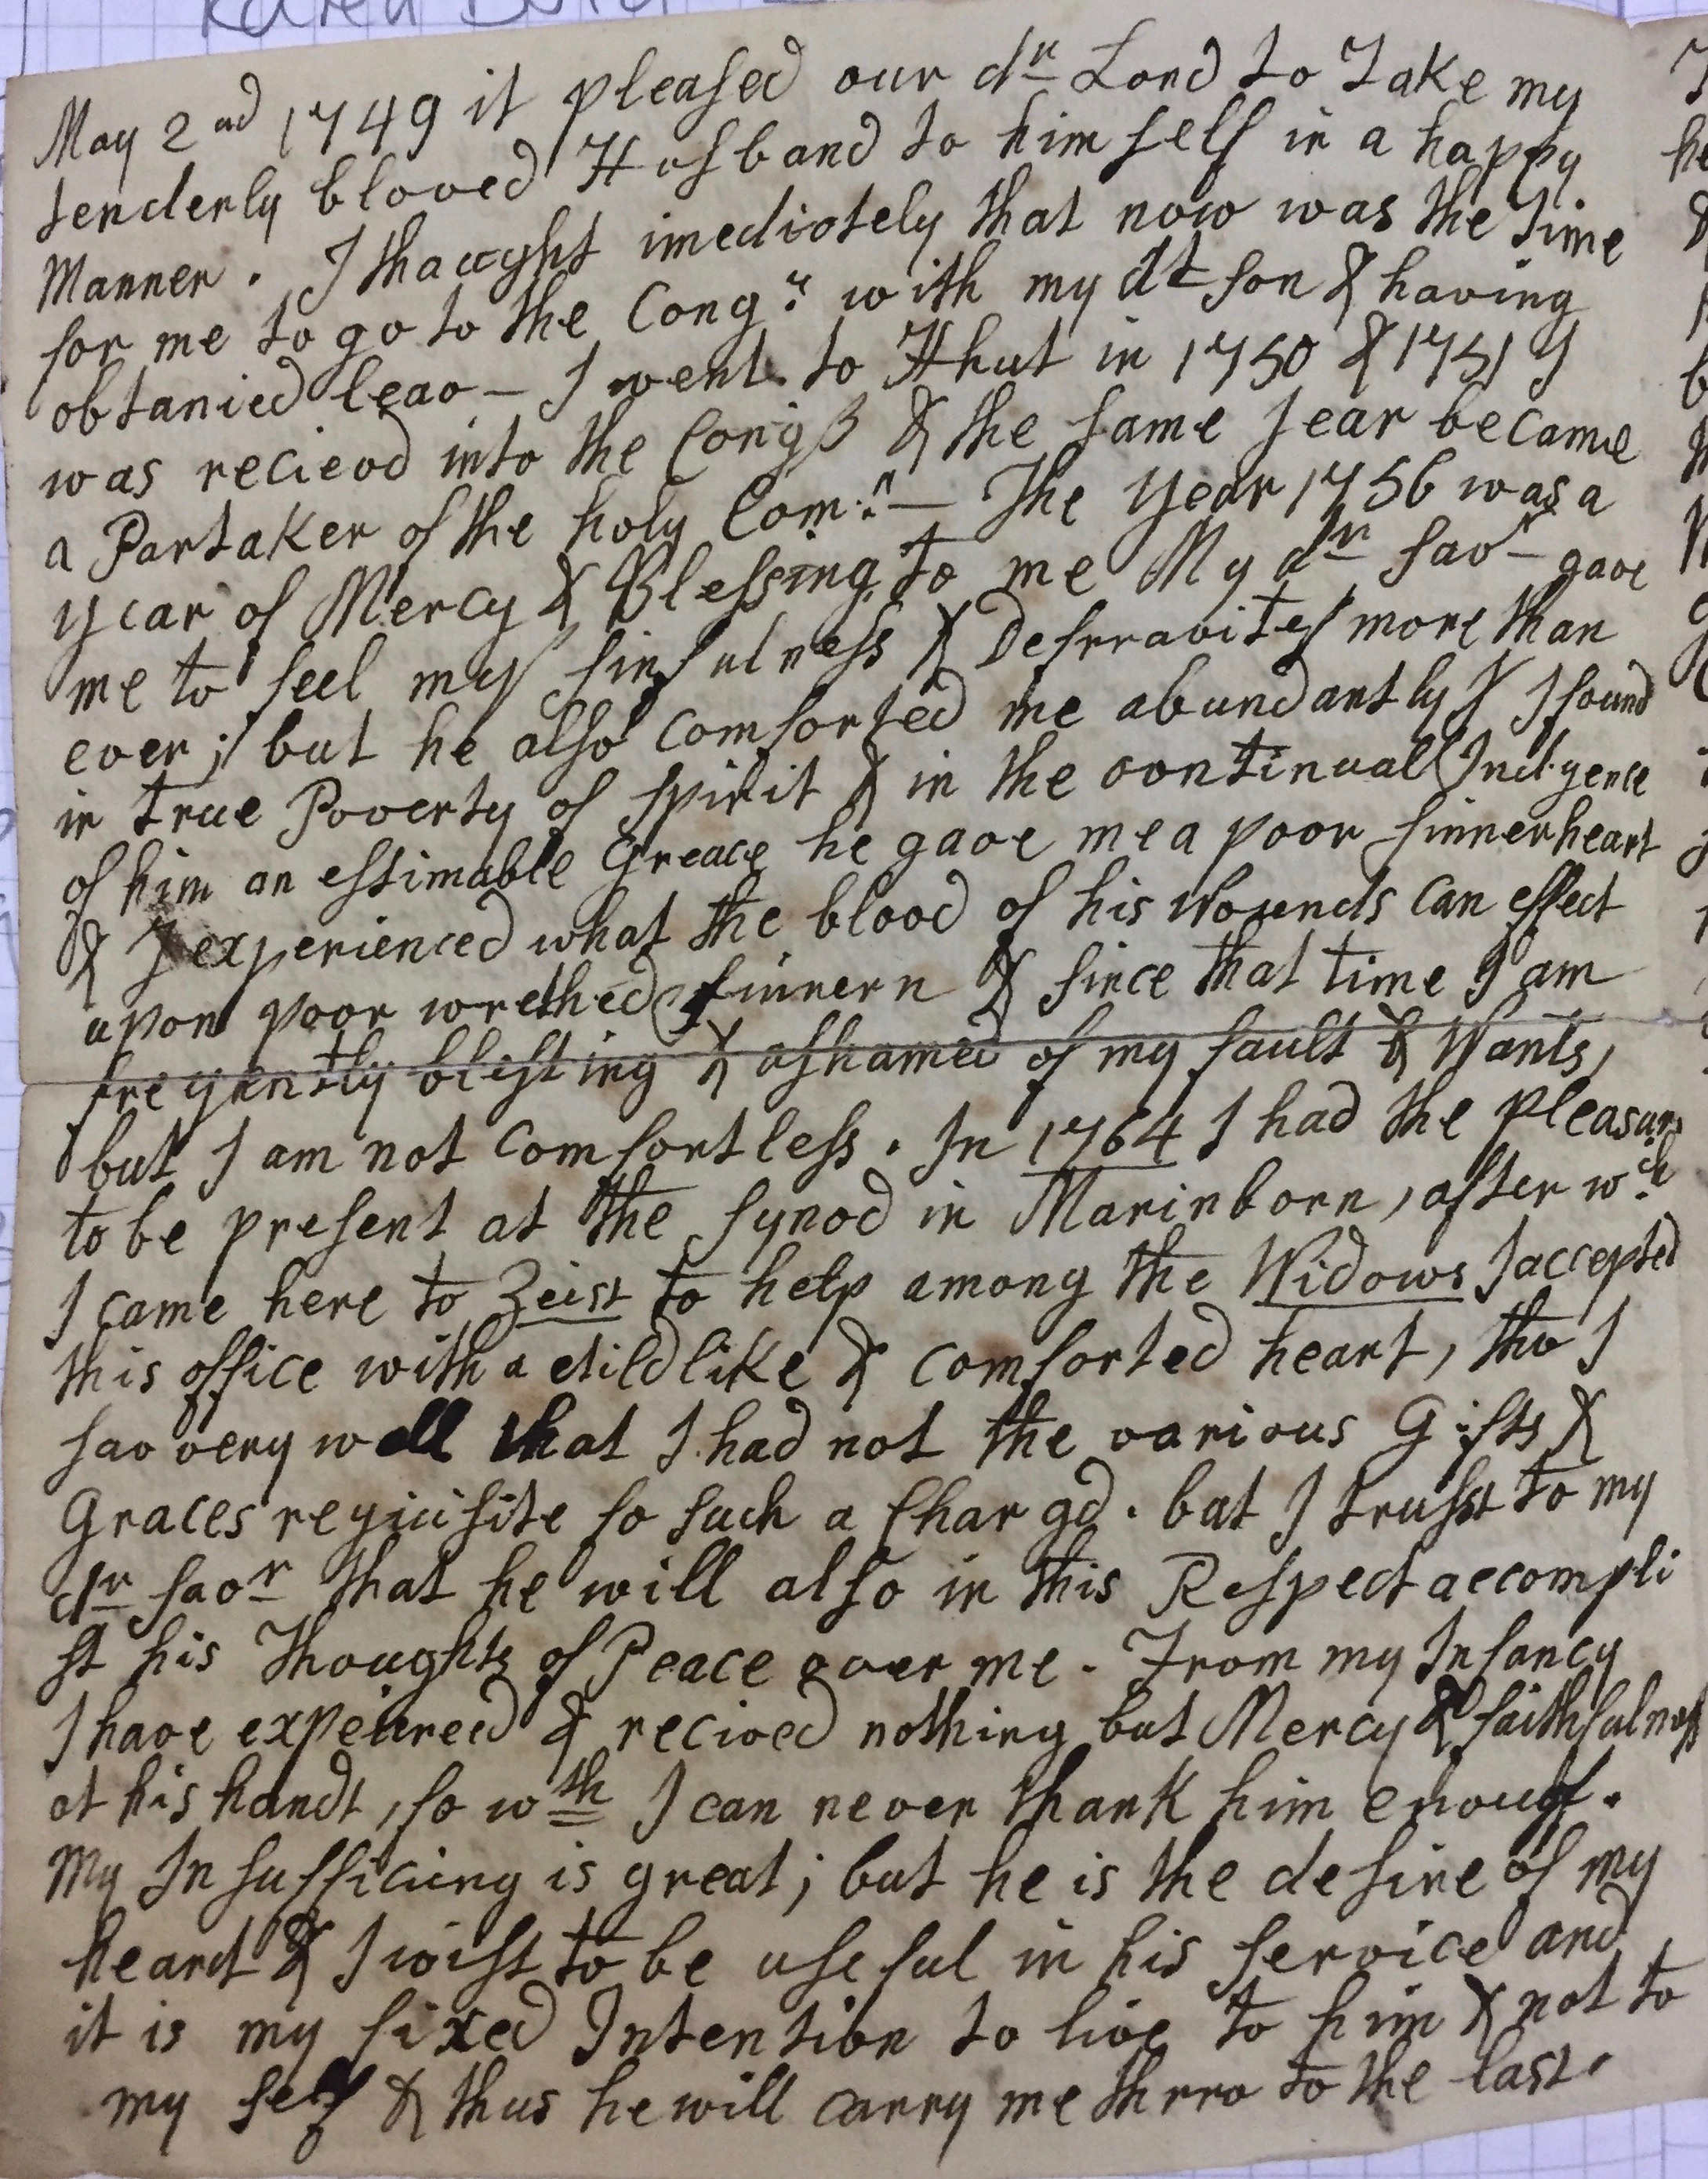 May 2nd 1749 it pleased our dr Lord to Take my
tenderly bloved Husband to him self in a happy
Manner. I thaught imediotely that now was the time
for me to go to the Congn with my dt son & having
obtanied leav – I went to Hhut in 1750 & 1751 I
was recievd into the Cong & the same jear became
a Partaker of the holy Comn – The Year 1756 was a
year of Mercy & Blessing to me My dr Savr gave
me to feel my sinfulness & Defrravitey more than
ever; but he also comforted me abundantly & I found
in true Poverty of spirit & in the continual Indigence
of him an estimable Greace he gave me a poor sinnerheart
& I experienced what the blood of his Wounds can effect
upon poor wrethed sinnern & since that time I am
freyuntly blisting & ashamed of my fault & Wants,
but I am not comfortless. In 1764 I had the pleasure
to be present at the synod in Marinborn, after wch
I came here to Zeist to help among the Widows I accepted
this office with a cildlike & comforted heart, tho I
sav very well that I had not the various Gifts &
Graces reyuisite so such a Chargd. bat I trusst to my
dr savr that he will also in this Respect accompli
st his Thoughts of Peace over me. From my Infancy
I have expeinreed & recived nothing but Mercy & faithfulness
at his handt, so wth I can never thank him enouf.
My Insufficieng is great; but he is the desire of my
heart & I wist to be useful in his service and
it is my fixed Intention to live to him & not to
my self & thus he will carry me thrro to the last.